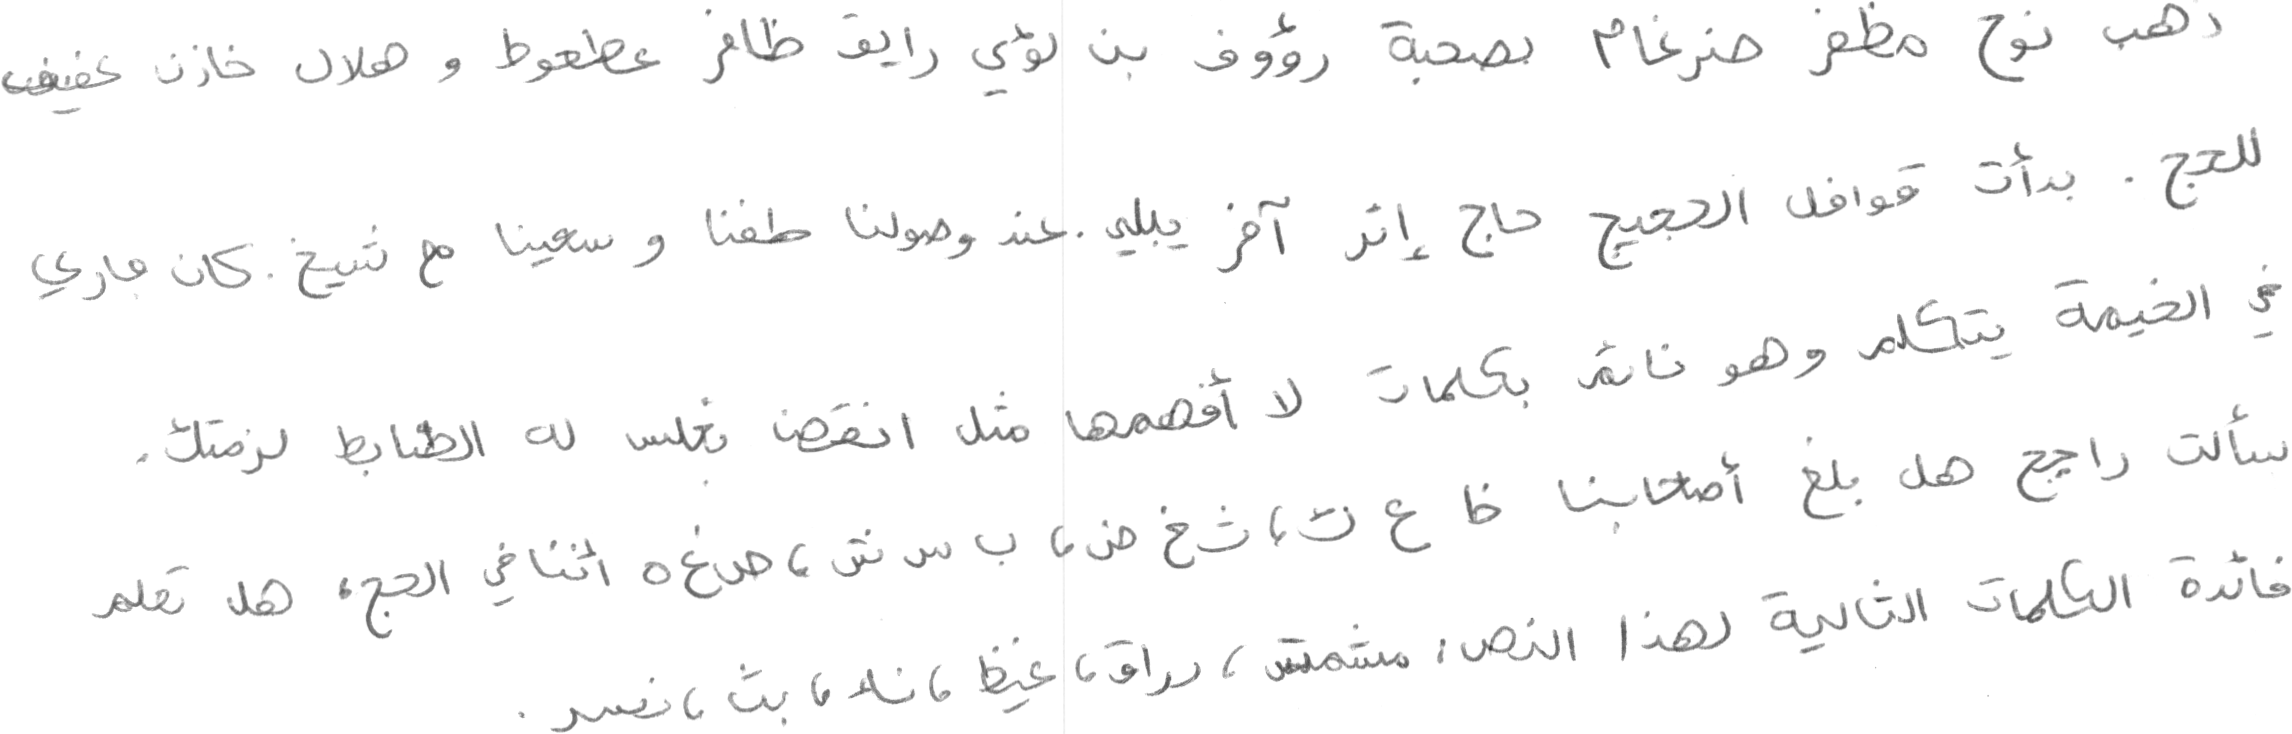 ذهب نوح مظفر ضرغام بصحبة رؤوف بن لؤي رايق ظافر عطعوط و هلال خازن عفيف
للحج . بدأت قوافل الحجيج حاج إثر آخر يبلي . عند وصولنا طفنا و سعينا مع شيخ . كان جاري
في الخيمة يتكلم وهو نائم بكلمات لا أفهمها مثل انقض بغلس له الضابط لزمتك .
سألت راجح هل بلغ أصحابنا ظ ع ث ، ث غ ض ، ب س ش ، ص غ ه اثنا في الحج ، هل تعلم
فائدة الكلمات التالية لهذا النص : مشمش ، دراق ، غيظ ، نله ، بث ، نفسر .